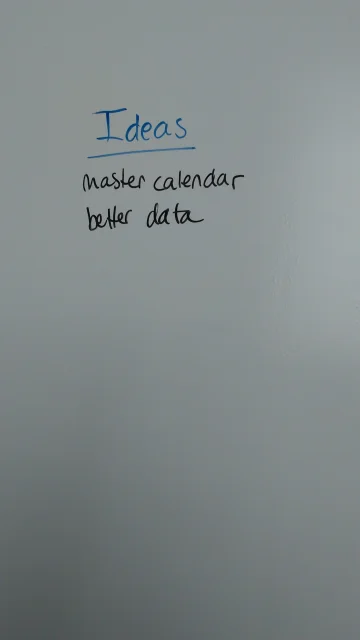 Ideas
master calendar
better data